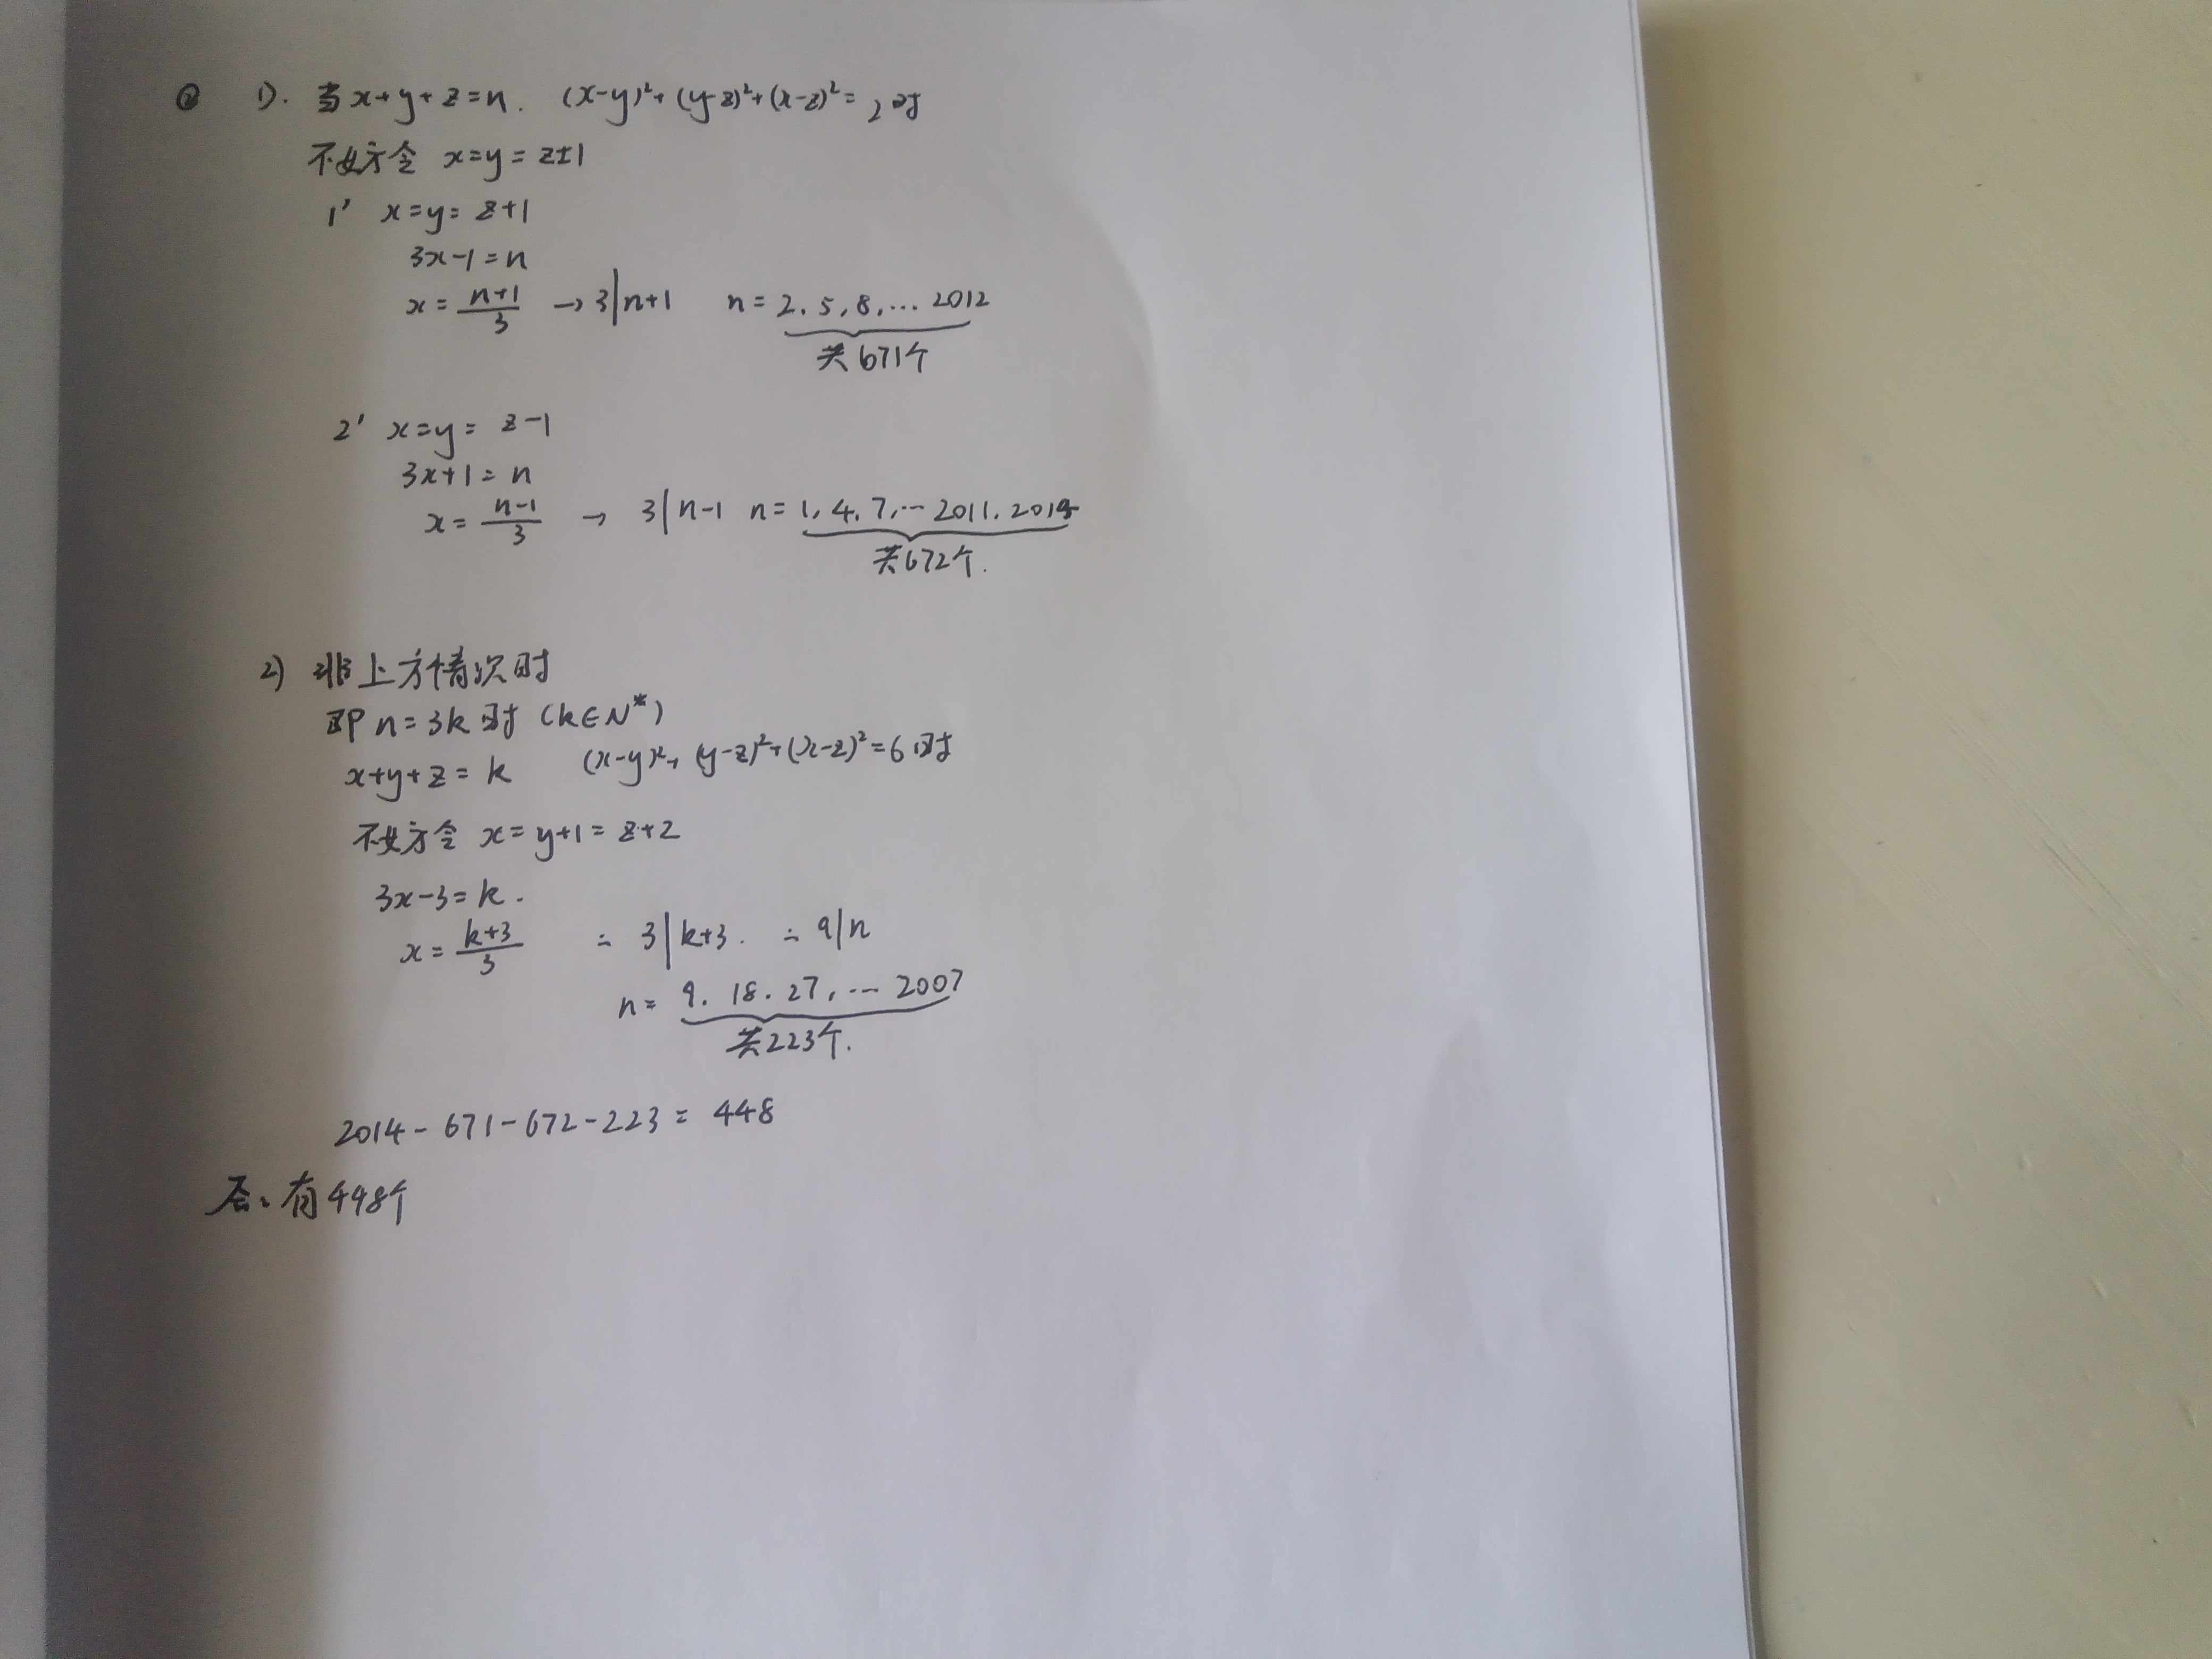 ② 1). 当x+y+z=n. (x-y)²+(y-z)²+(x-z)²=2时
不妨令 x=y=z±1
1' x=y=z+1
3x-1=n
x=\frac{n+1}{3} → 3|n+1 n=2.5,8,...2012
共671个
2' x=y=z-1
3x+1=n
x=\frac{n-1}{3} → 3|n-1 n=1,4.7,...2011.2014
共672个.
2) 非上方情况时
即n=3k时 (k∈N*)
x+y+z=k (x-y)²+(y-z)²+(x-z)²=6时
不妨令 x=y+1=z+2
3x-3=k.
x=\frac{k+3}{3} ∴ 3|k+3. ∴ 9|n
n=9.18.27,...2007
共223个.
2014-671-672-223=448
答:有448个